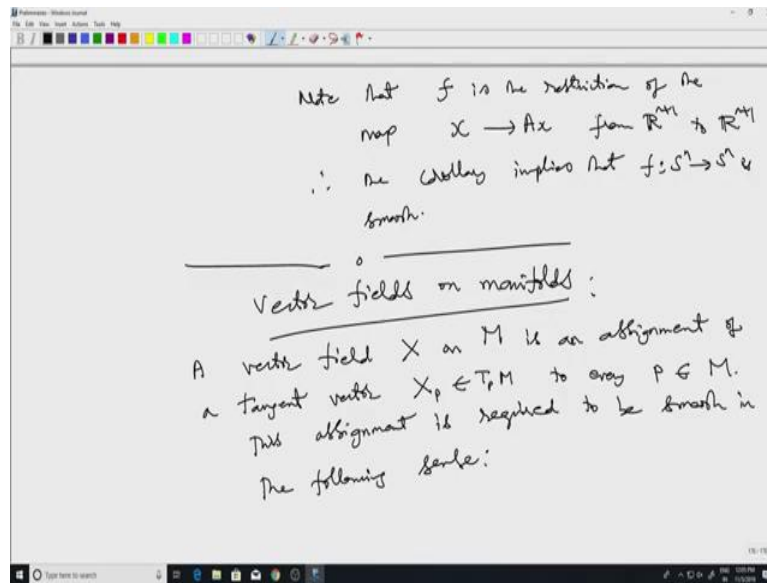 Preliminaries - Windows Journal
File Edit View Insert Actions Tools Help
Note that f is the restriction of the
map x → Ax from ℝⁿ⁺¹ to ℝⁿ⁺¹
∴ the corollary implies that f: Sⁿ → Sⁿ is
smooth.
Vector fields on manifolds:
A vector field X on M is an assignment of
a tangent vector Xₚ ∈ TₚM to every p ∈ M.
This assignment is required to be smooth in
the following sense:
Type here to search